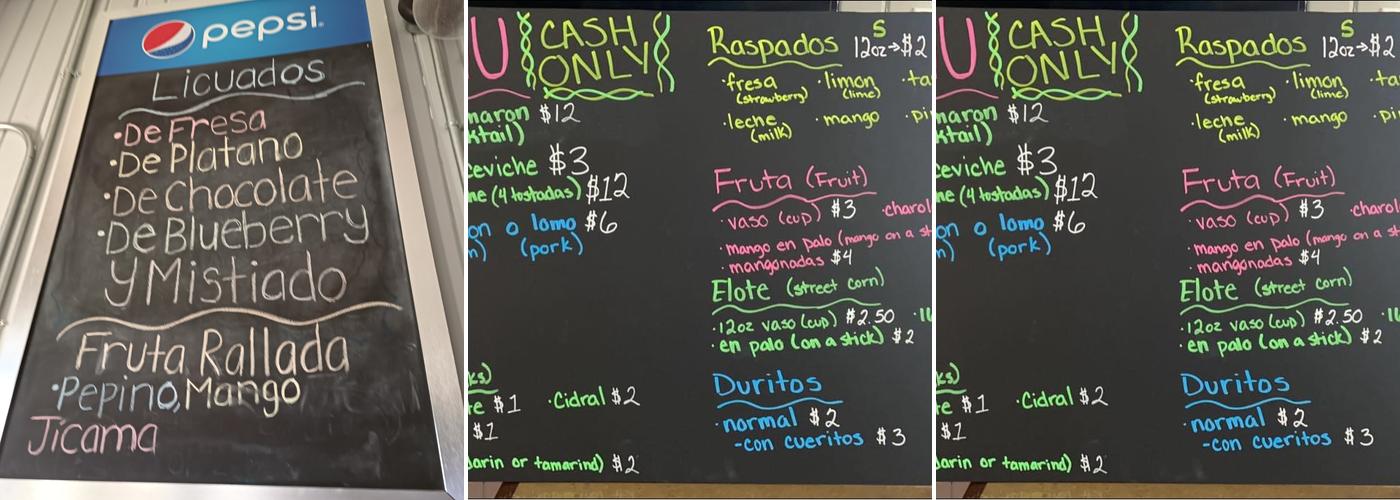 pepsi.
Licuados
·De Fresa
·De Platano
·De Chocolate
·De Blueberry
y Mistiado
Fruta Rallada
·Pepino, Mango
Jicama
U
CASH
ONLY
maron $12
ktail)
ceviche $3
ne (4 tostadas) $12
on o lomo $6
n) (pork)
ks)
te $1 ·Cidral $2
$1
darin or tamarind) $2
Raspados S
12oz→$2
·fresa ·limon ·ta
(strawberry) (lime)
·leche ·mango ·pi
(milk)
Fruta (Fruit)
·vaso (cup) $3 ·charol
·mango en palo (mango on a st
·mangonadas $4
Elote (street corn)
·12oz vaso (cup) $2.50 ·16
·en palo (on a stick) $2
Duritos
·normal $2
-con cueritos $3
U
CASH
ONLY
maron $12
ktail)
ceviche $3
ne (4 tostadas) $12
on o lomo $6
n) (pork)
ks)
te $1 ·Cidral $2
$1
darin or tamarind) $2
Raspados S
12oz→$2
·fresa ·limon ·ta
(strawberry) (lime)
·leche ·mango ·pi
(milk)
Fruta (Fruit)
·vaso (cup) $3 ·charol
·mango en palo (mango on a st
·mangonadas $4
Elote (street corn)
·12oz vaso (cup) $2.50 ·16
·en palo (on a stick) $2
Duritos
·normal $2
-con cueritos $3